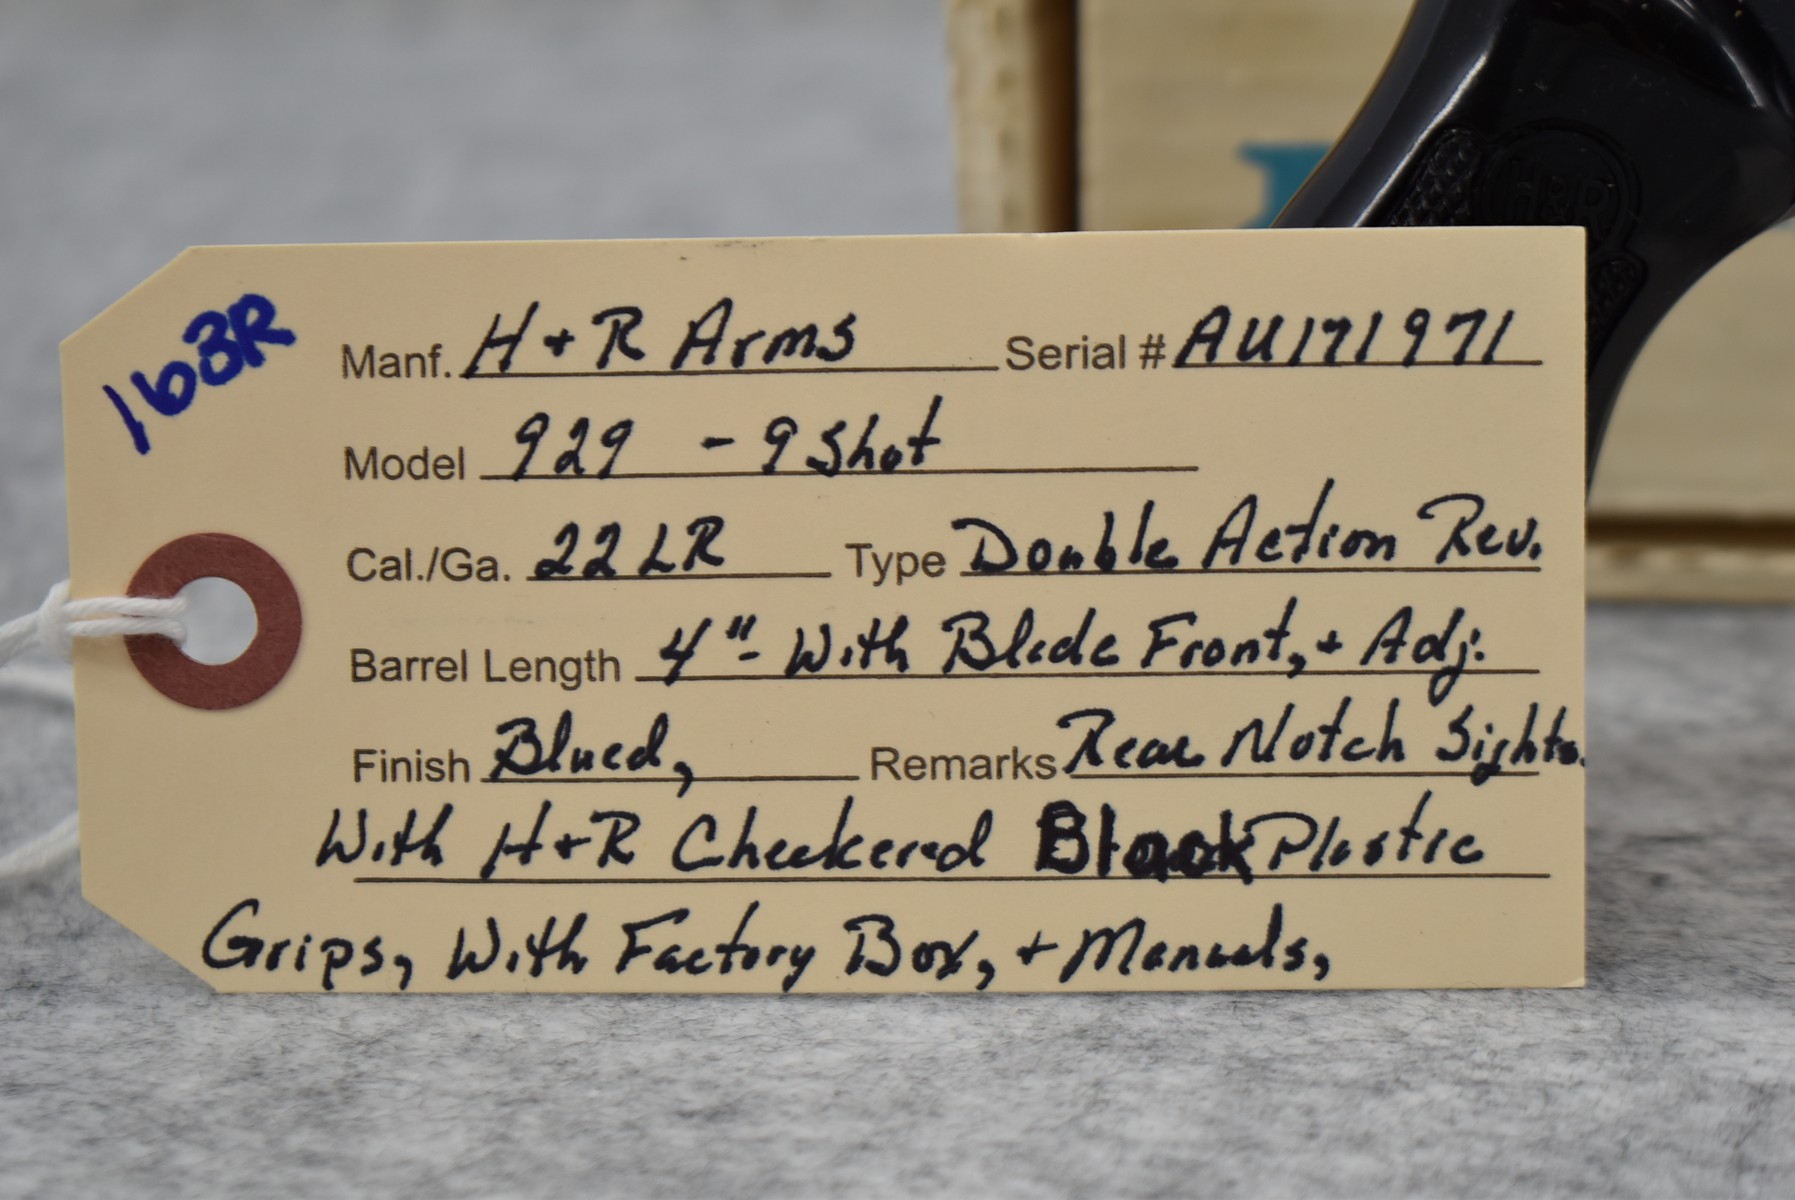 H&R
163R
Manf. H + R Arms Serial # AU171971
Model 929 - 9 Shot
Cal./Ga. 22 LR Type Double Action Rev.
Barrel Length 4" - With Blade Front, + Adj.
Finish Blued, Remarks Rear Notch Sights.
With H + R Checkered Black Plastic
Grips, With Factory Box, + Manuals,